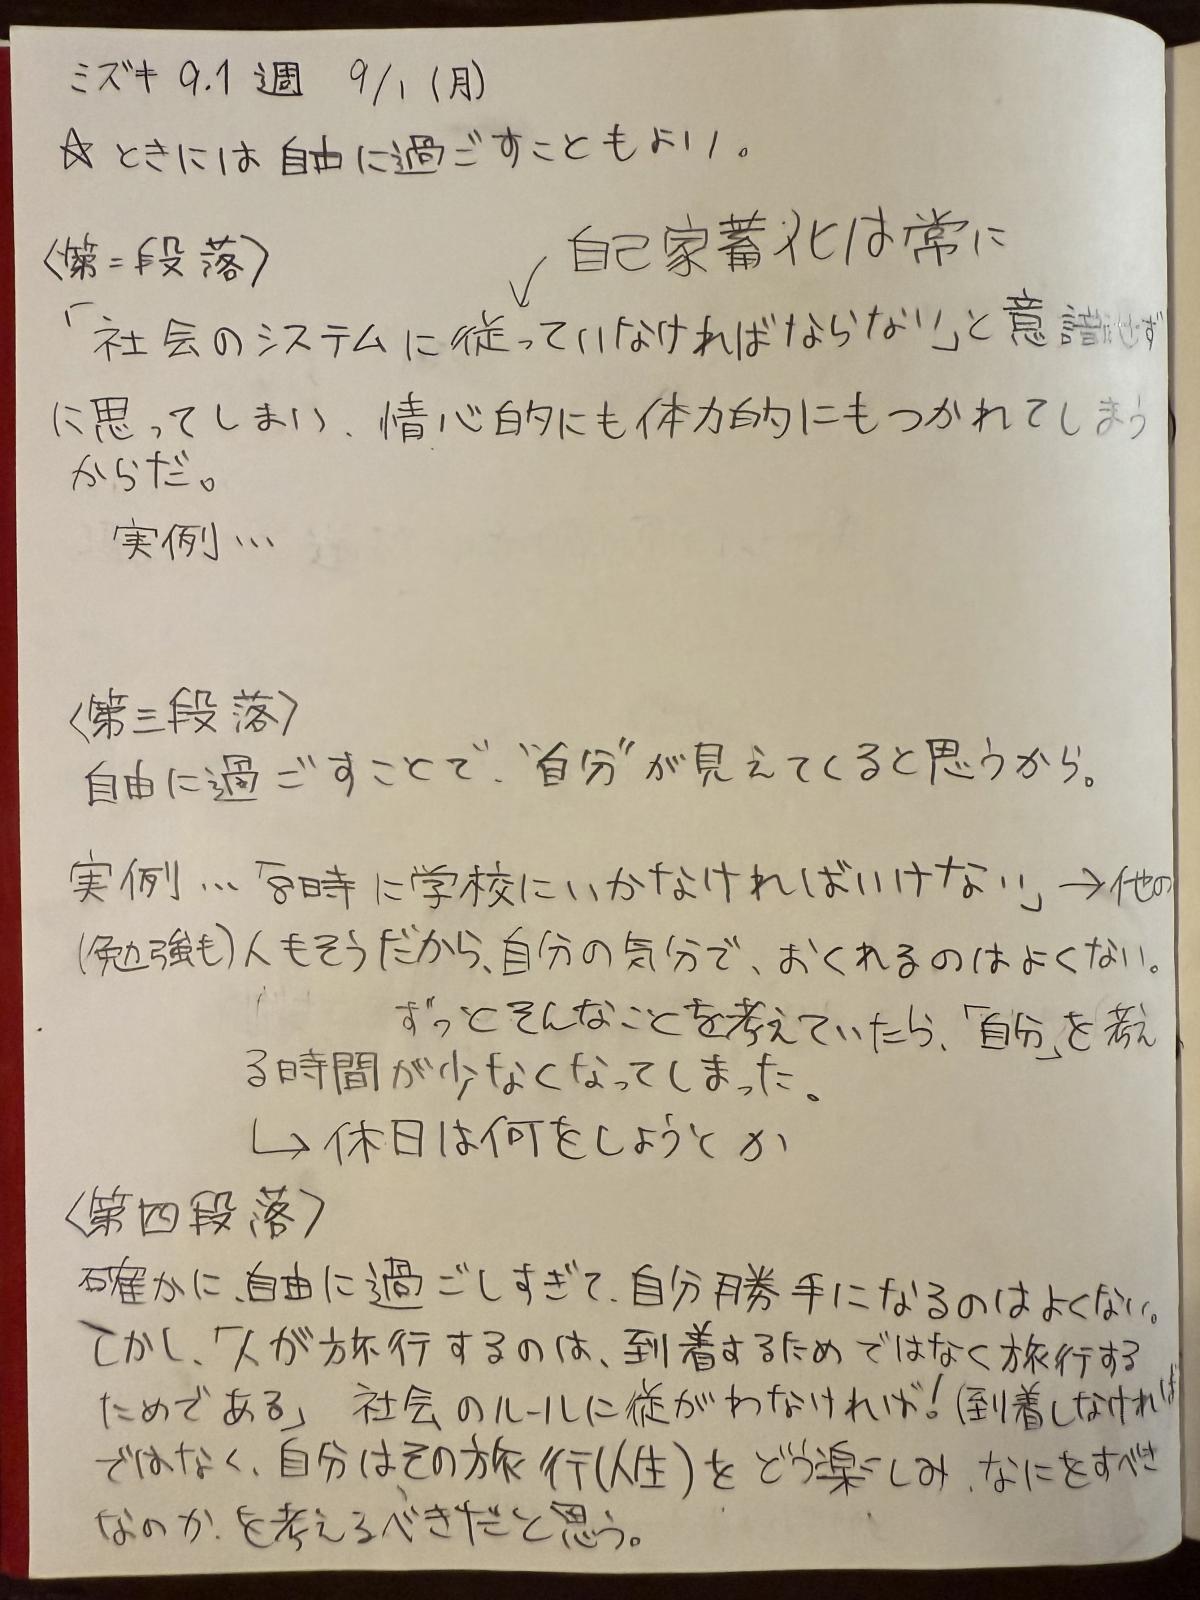 ミズキ 9.1週 9/1(月)
☆ ときには自由に過ごすこともよい。
〈第二段落〉
↙ 自己家畜化は常に
「社会のシステムに従っていなければならない」と意識せず
に思ってしまい、情心的にも体力的にもつかれてしまう
からだ。
実例…
〈第三段落〉
自由に過ごすことで、“自分”が見えてくると思うから。
実例…「8時に学校にいかなければいけない」→他の
(勉強も)人もそうだから、自分の気分で、おくれるのはよくない。
ずっとそんなことを考えていたら、「自分」を考え
る時間が少なくなってしまった。
↳ 休日は何をしようとか
〈第四段落〉
確かに、自由に過ごしすぎて、自分勝手になるのはよくない。
しかし、「人が旅行するのは、到着するためではなく旅行する
ためである」 社会のルールに従がわなければ!(到着しなければ
ではなく、自分はその旅行(人生)をどう楽しみ、なにをすべき
なのか、を考えるべきだと思う。